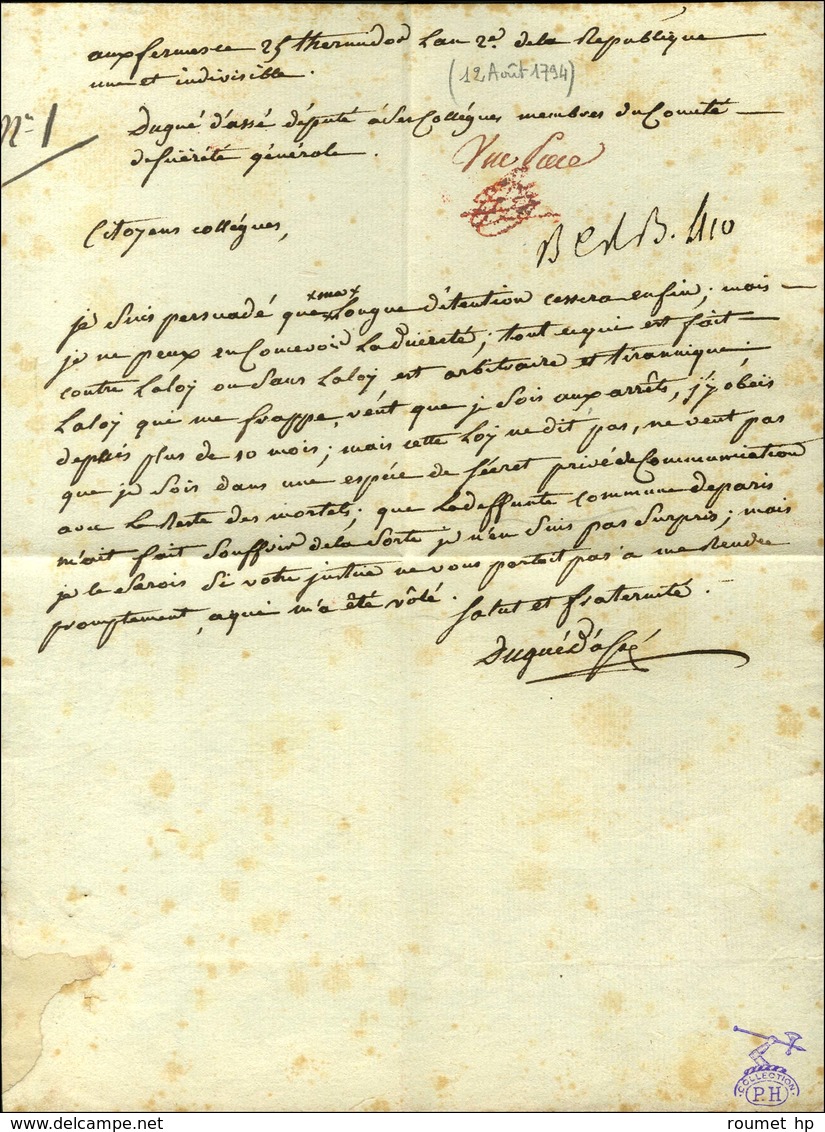 aux fermes ce 25 thermidor L'an 2e. de la Republique
une et indivisible.
(12 Août 1794)
N° 1
Dugué d'assé député à Ses Collégues membres du Comité
de Sureté générale.
Citoyens collégues,
B C d B. 410
je Suis persuadé que x ma x Longue détention cessera enfin; mais
je ne peux en Concevoir La dureté; tout ce qui est fait
contre La loy ou Sans La loy est arbitraire et tirannique.
La loy qui me frappe, veut que je Sois aux arrêts, j'y obéis
depuis plus de 10 mois; mais cette Loy ne dit pas, ne veut pas
que je Sois dans une espéce de Sécret privé de Communication
avec Le Reste des mortels; que La deffunte commune de paris
m'ait fait Souffrir de la Sorte je n'en Suis pas Surpris; mais
je le Serois Si votre justice ne vous portoit pas à me Rendre
promptement, ce qui m'a été vôlé.
Salut et fraternité.
Dugué D'assé
COLLECTION
P.H
roumet hp
roumet hp